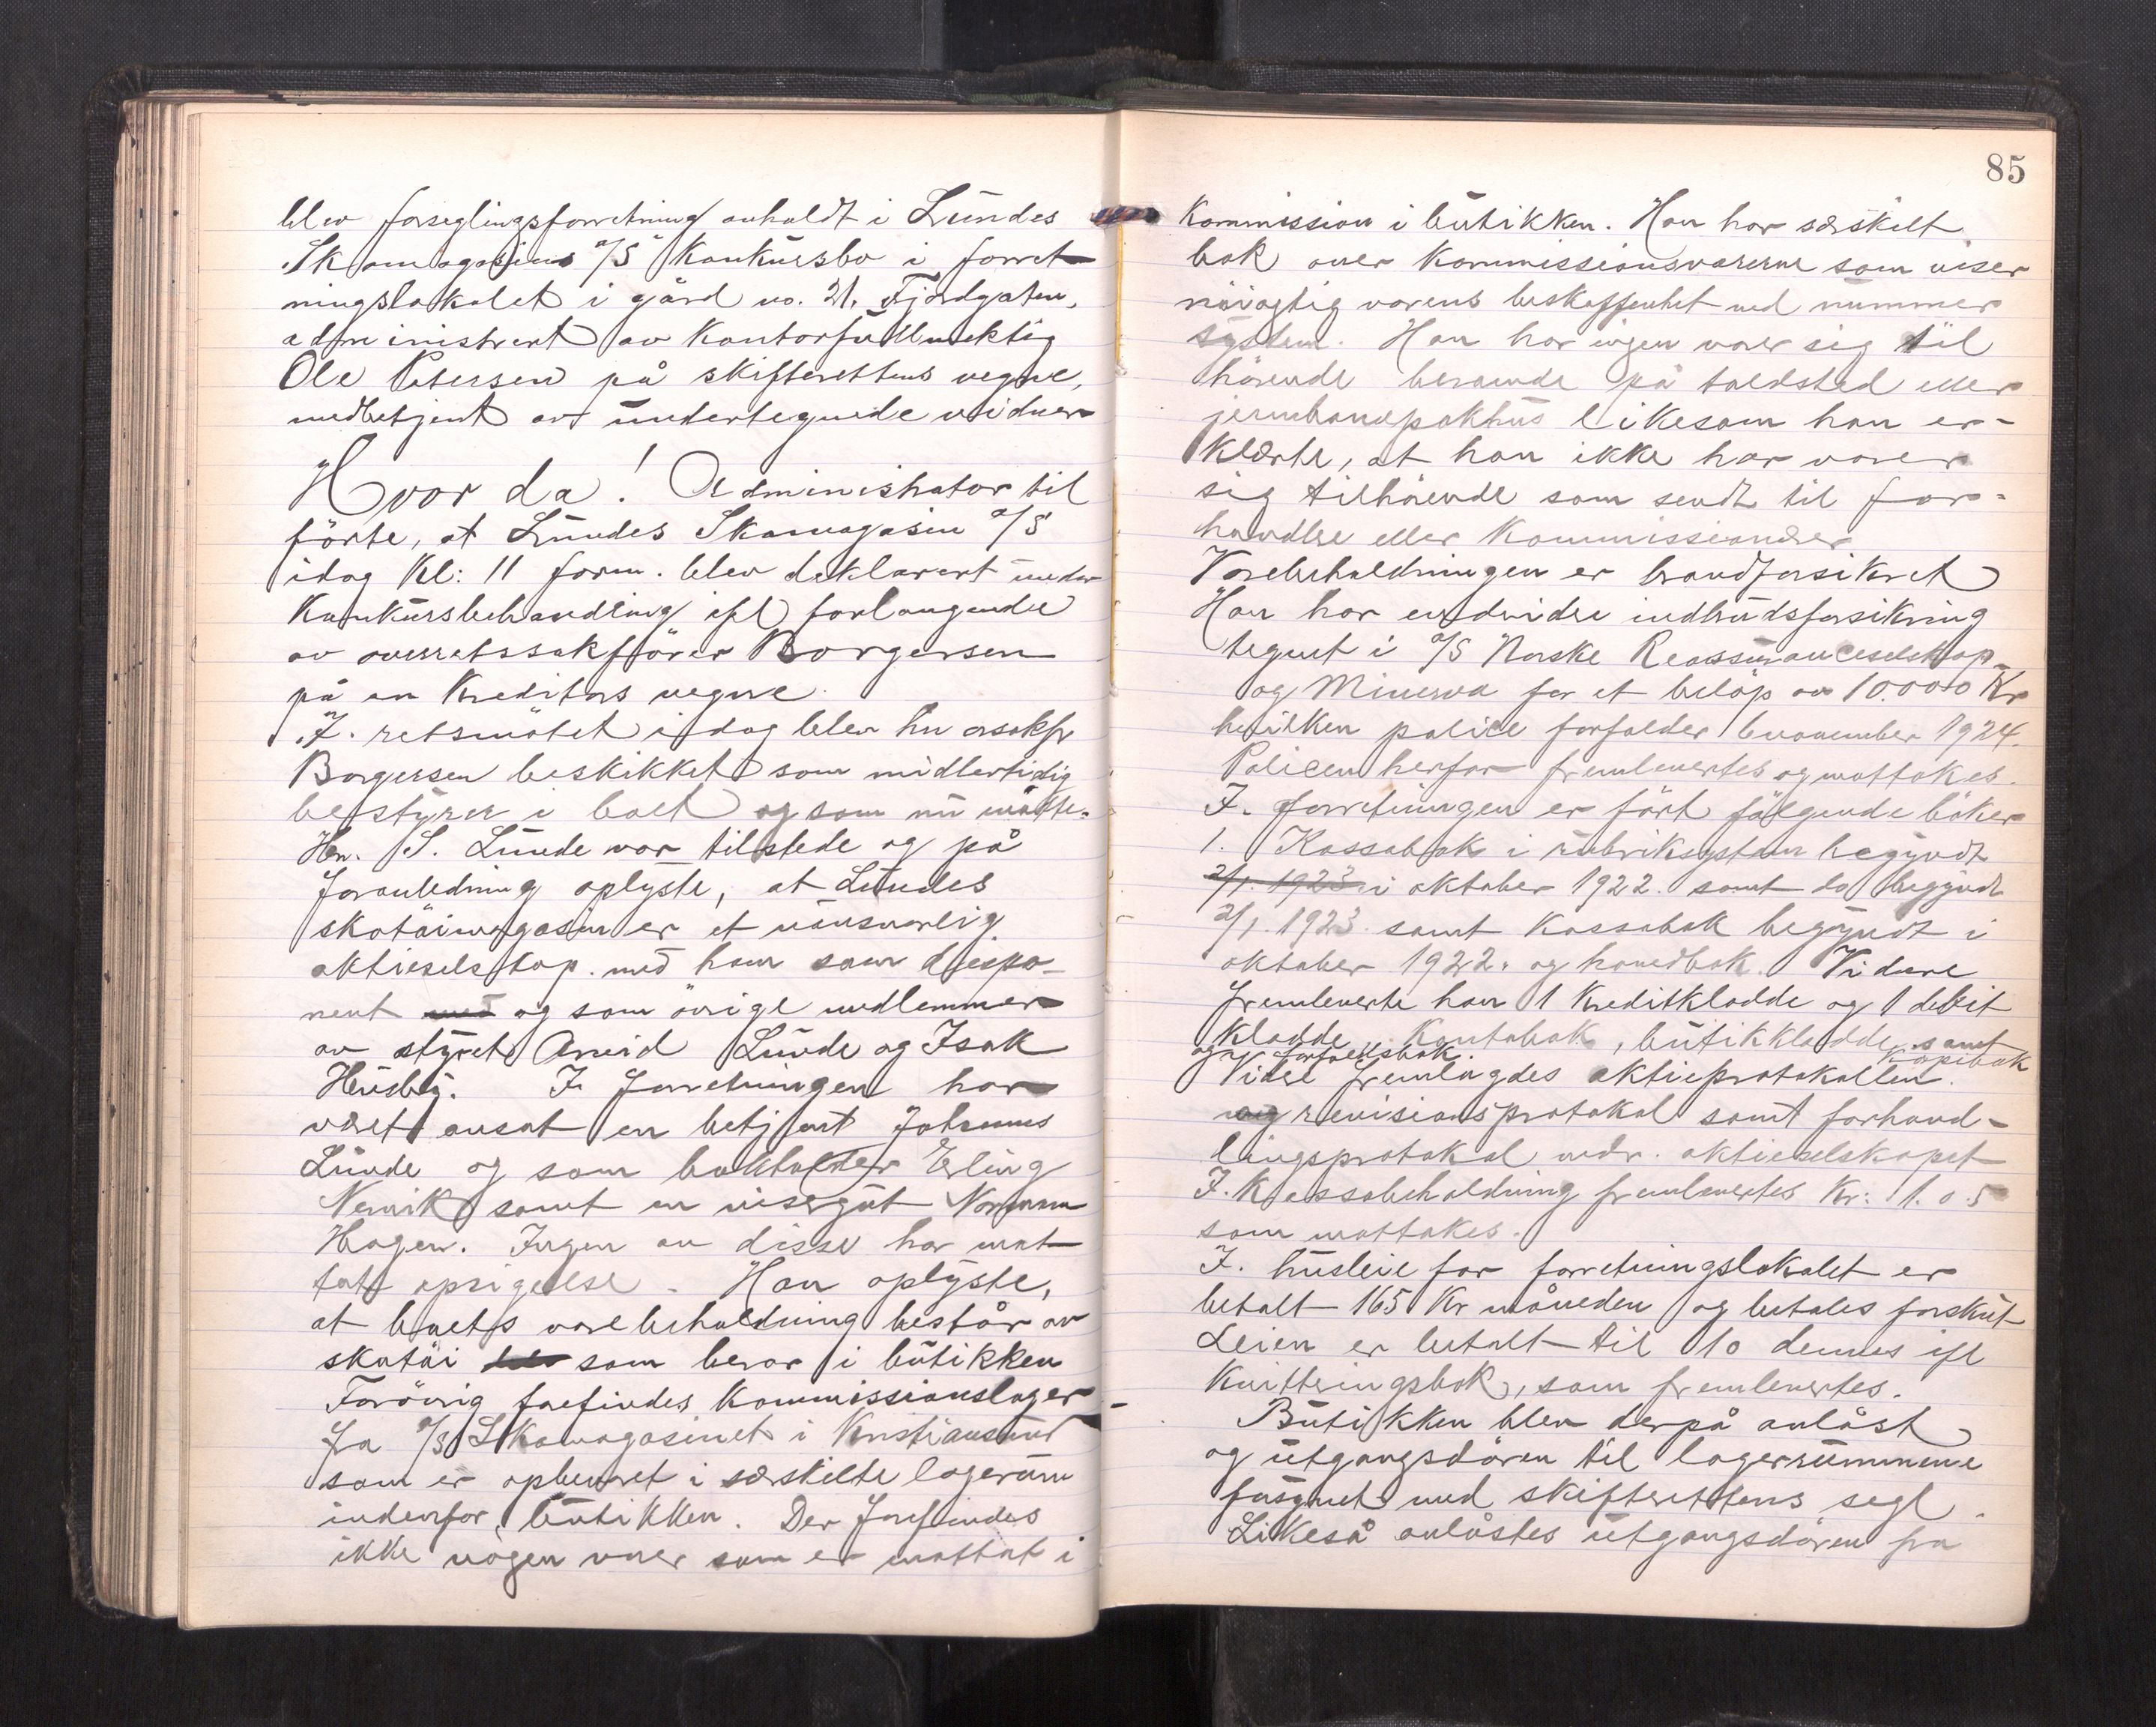 blev forseglingsforretning avholdt i Lundes
Skomagasins A/S Konkursbo i forret-
ningslokalet i gård no. 21. Fjordgaten,
administrert av Kontorfullmektig
Ole Petersen på skifterettens vegne,
medbetjent av undertegnede vidner
Hvor da! Administrator til
förte, at Lundes Skomagasin A/S
idag Kl: 11 form. blev deklarert under
Konkursbehandling ifl forlangende
av overretssakförer Borgersen
på en Kreditors vegne.
I. retsmötet idag blev hr orsakfr
Borgersen beskikket som midlertidig
bestyrer i boet og som nu mötte.
Hr. S. Lunde var tilstede og på
foranledning oplyste, at Lundes
skotöimagasin er et uansvarlig
aktieselskap. med ham som dispo-
nent med og som övrige medlemmer
av styret Arvid Lunde og Isak
Husby. I. forretningen har
været ansat en betjent Johannes
Lunde og som bokholder Erling
Nervik samt en visergut Normann
Hagen. Ingen av disse har mot
tatt opsigelse. Han oplyste,
at boets varebeholdning består av
skotöi som beror i butikken
Forövrig forefindes Kommissionslager
fra A/S Skomagasinet i Kristiansund
som er opbevaret i særskilte lagerrum
indenfor butikken. Der forefindes
ikke nogen varer som er mottat i
85
Kommission i butikken. Han har særskilt
bok over Kommissionsvarerne som viser
nöiagtig varens beskaffenhet med nummer
system. Han har ingen varer sig til
hörende beroende på toldsted eller
jernbanepakhus likesom han er-
klærte, at han ikke har varer
sig tilhörende som sendt til for-
handlere eller Kommissionærer
Varebeholdningen er brandforsikret
Han har endvidere indbrudsforsikring
tegnet i A/S Norske Reassuranceselskap
og Minerva for et belöp av 10.000 Kr
hvilken police forfalder 6 november 1924.
Policen herfor fremlevertes og mottokes.
I. forretningen er fört fölgende böker
1. Kassabok i rubriksystem begyndt
2/1. 1923 i oktober 1922. samt do begyndt
2/1. 1923 samt Kassabok begyndt i
oktober 1922. og hovedbok. Videre
fremleverte han 1 Kreditkladde og 1 debit
kladde, Kontobok, butikkladde, samt
og forfaldsbok. Kopibok
Videre fremlagdes aktieprotokollen.
og revisionsprotokol samt forhand-
lingsprotokol vedr. aktieselskapet
I. Kassabeholdning fremlevertes Kr: 1.05
som mottokes.
I. husleie for forretningslokalet er
betalt 165 Kr måneden og betales forskut
Leien er betalt til 10 dennes ifl
Kvitteringsbok, som fremlevertes.
Butikken blev derpå avlåst
og utgangsdören til lagerrummene
forsynet med skifterettens segl
Likeså avlåstes utgangsdören fra